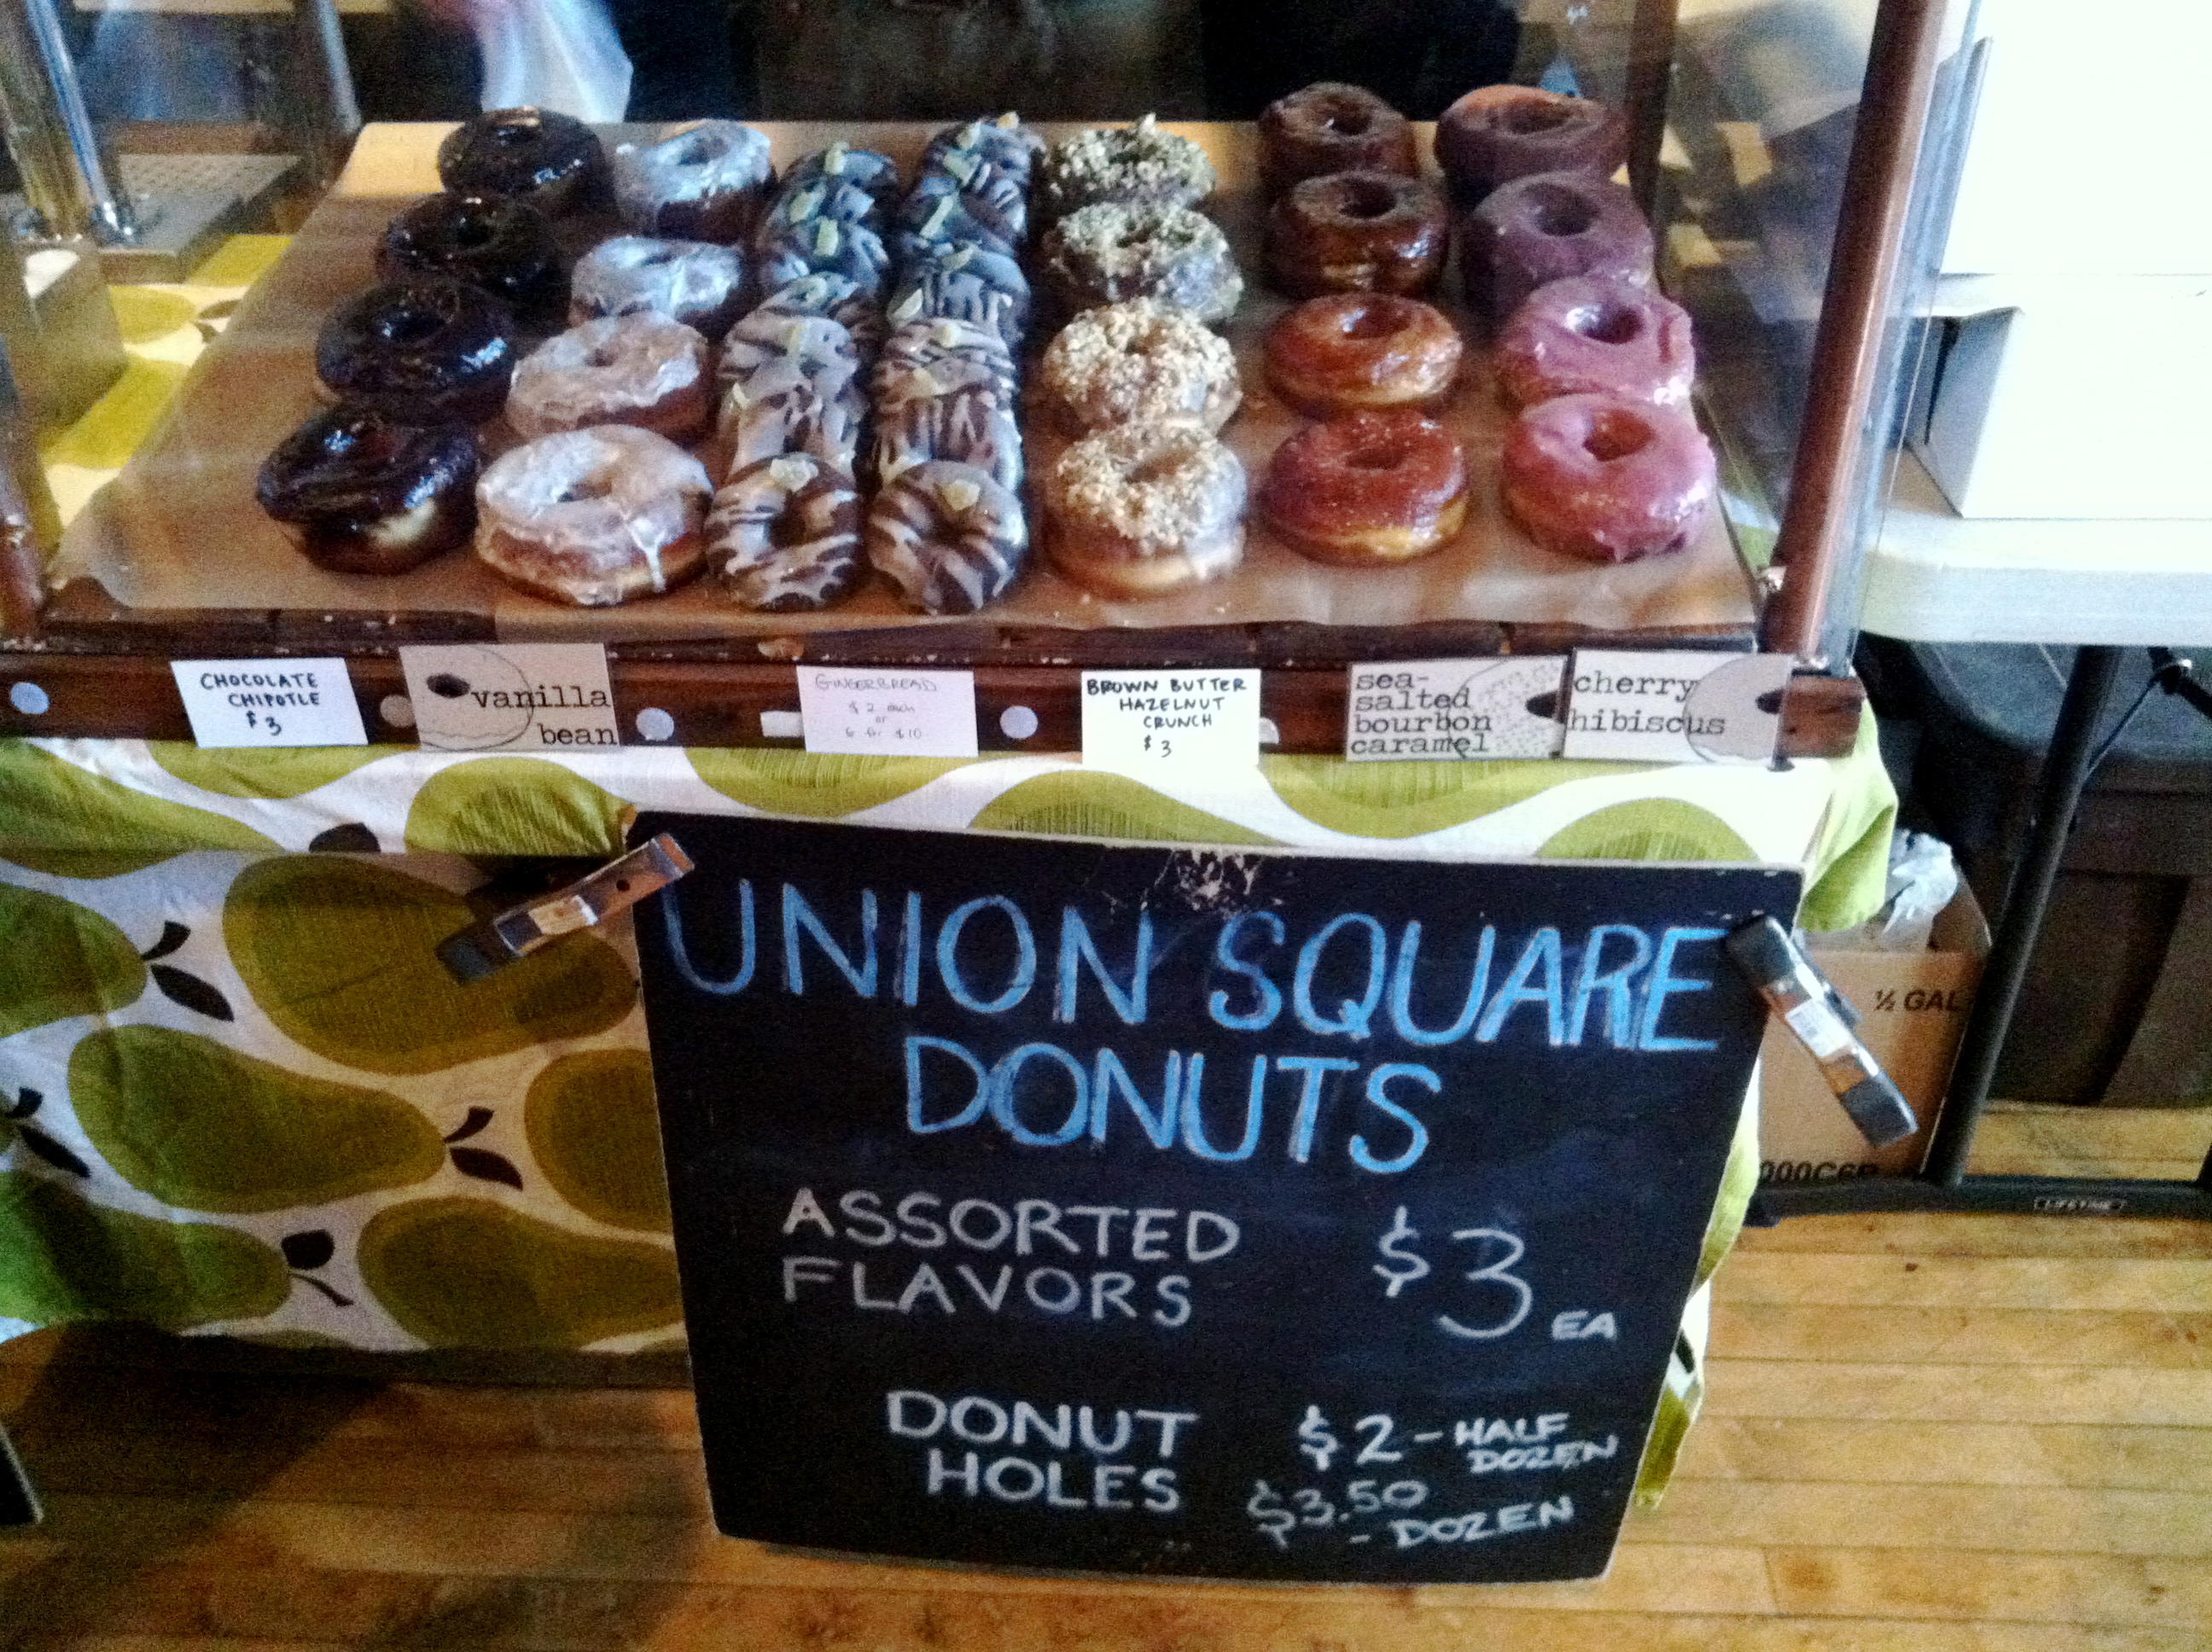 CHOCOLATE
CHIPOTLE
$3
vanilla
bean
GINGERBREAD
$2 each
or
6 for $10
BROWN BUTTER
HAZELNUT
CRUNCH
$3
sea-
salted
bourbon
caramel
cherry
hibiscus
UNION SQUARE
DONUTS
ASSORTED
FLAVORS
$3 EA
DONUT
HOLES
$2 - HALF
DOZEN
$3.50
- DOZEN
½ GAL
LIFETIME